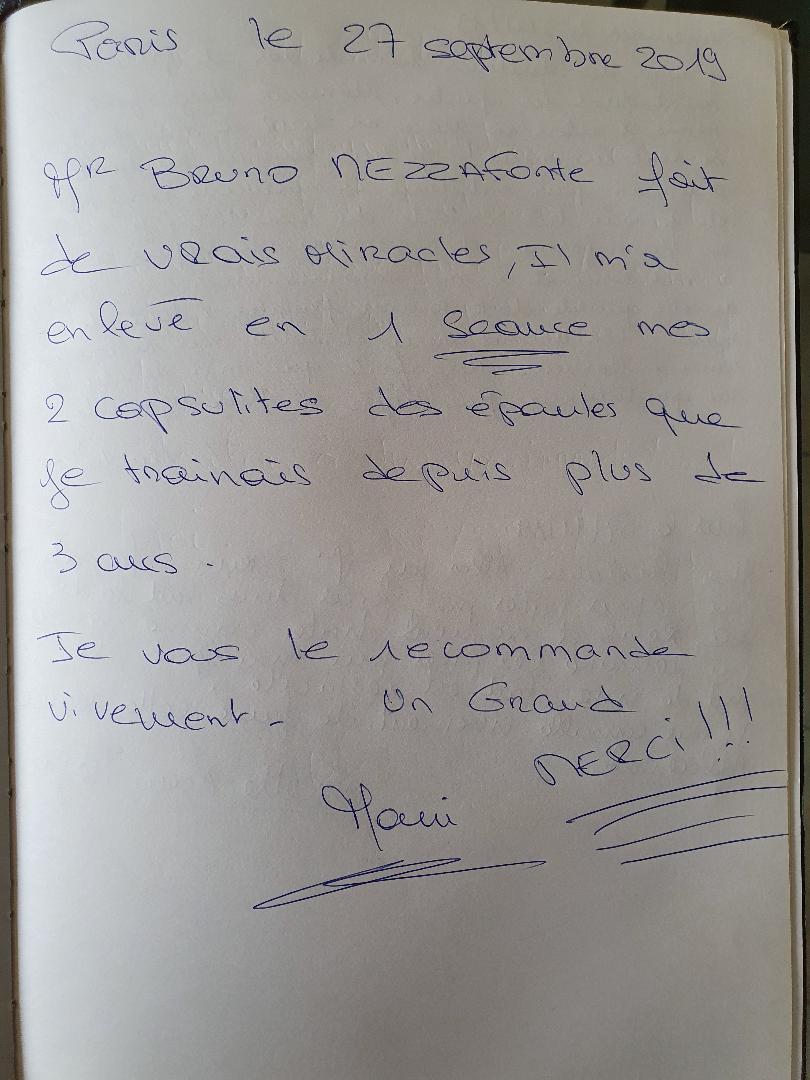 Paris le 27 septembre 2019
Mr Bruno MEZZAFonte fait
de vrais Miracles, Il m'a
enlevé en 1 Seance mes
2 capsulites des épaules que
je trainais depuis plus de
3 ans.
Je vous le recommande
vivement - Un Grand
MERCi !!!